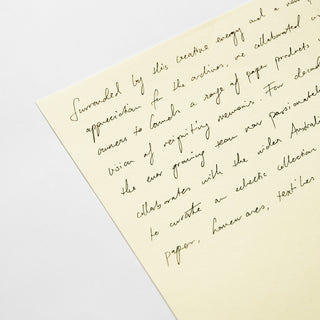 Surrounded by this creative energy and a new
appreciation for the archives, we collaborated
owners to launch a range of paper products
vision of reigniting memoirs. For decades
the ever growing team now passionately
collaborates with the wider Australia
to curate an eclectic collection
paper, homewares, textiles